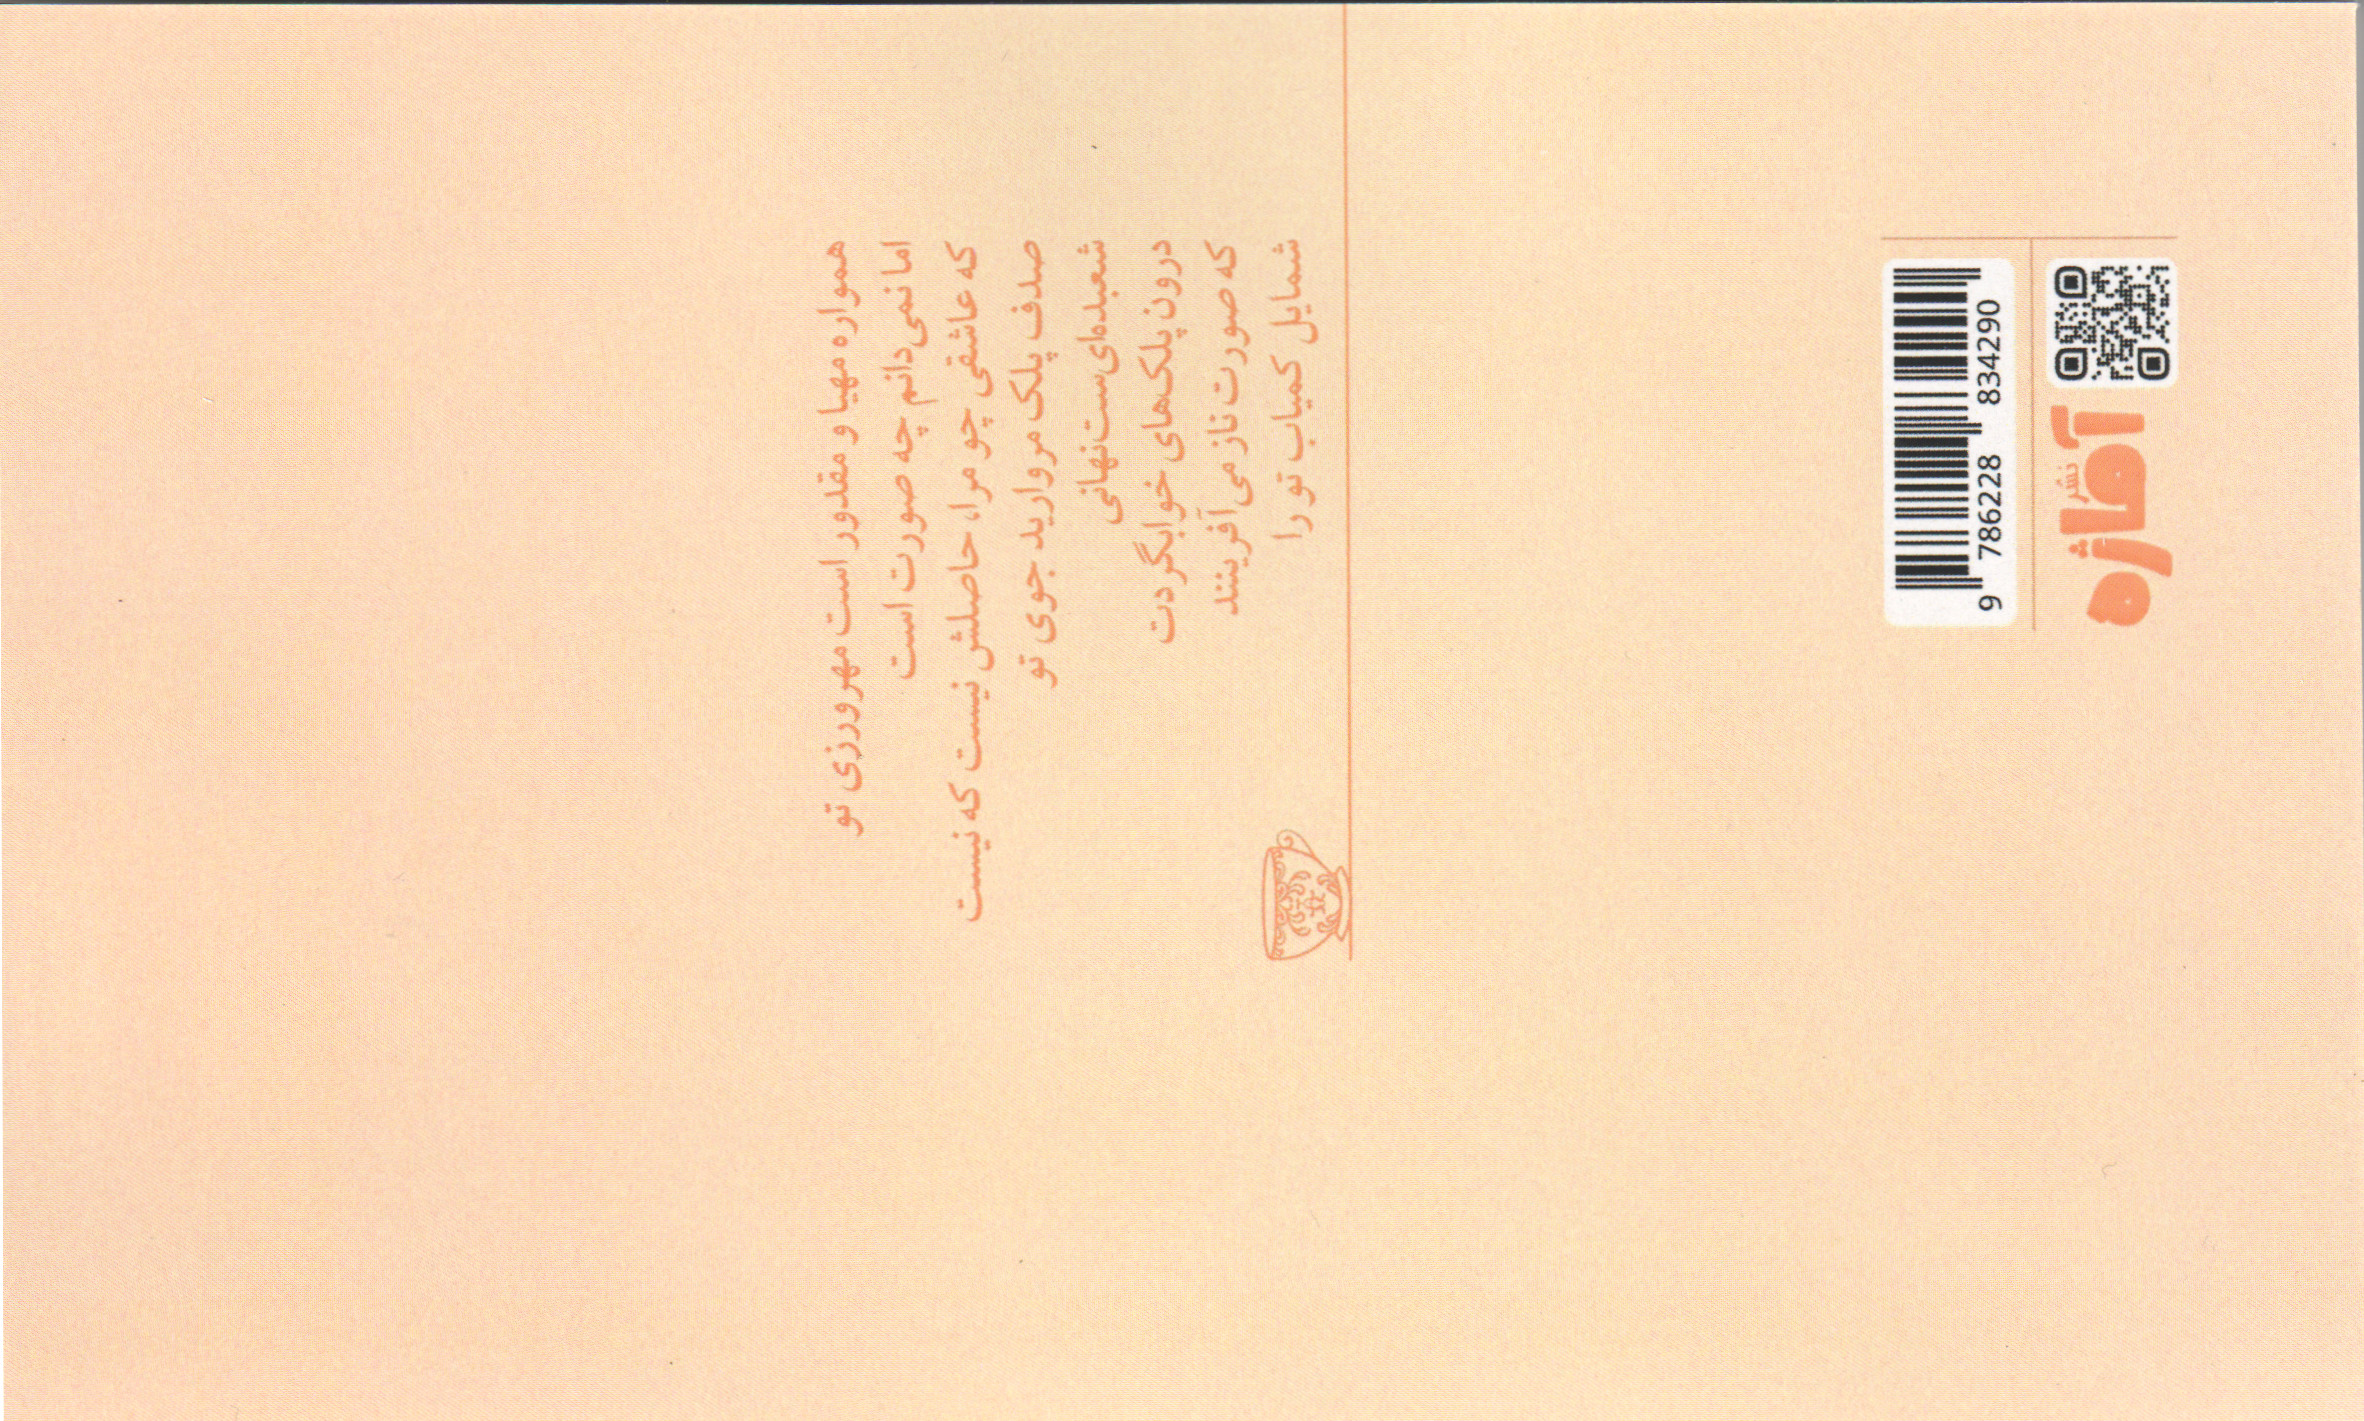 همواره مهیا و مقدور است مهرورزی تو
اما نمی‌دانم چه صورت است
که عاشقی چو مرا، حاصلش نیست که نیست
صدف پلک مروارید جوی تو
شعبده‌ای‌ست‌نهانی
درون پلک‌های خوابگردت
که صورت ناز می‌آفرینند
شمایل کمیاب تو را
نشر
آفتازه
9 786228 834290